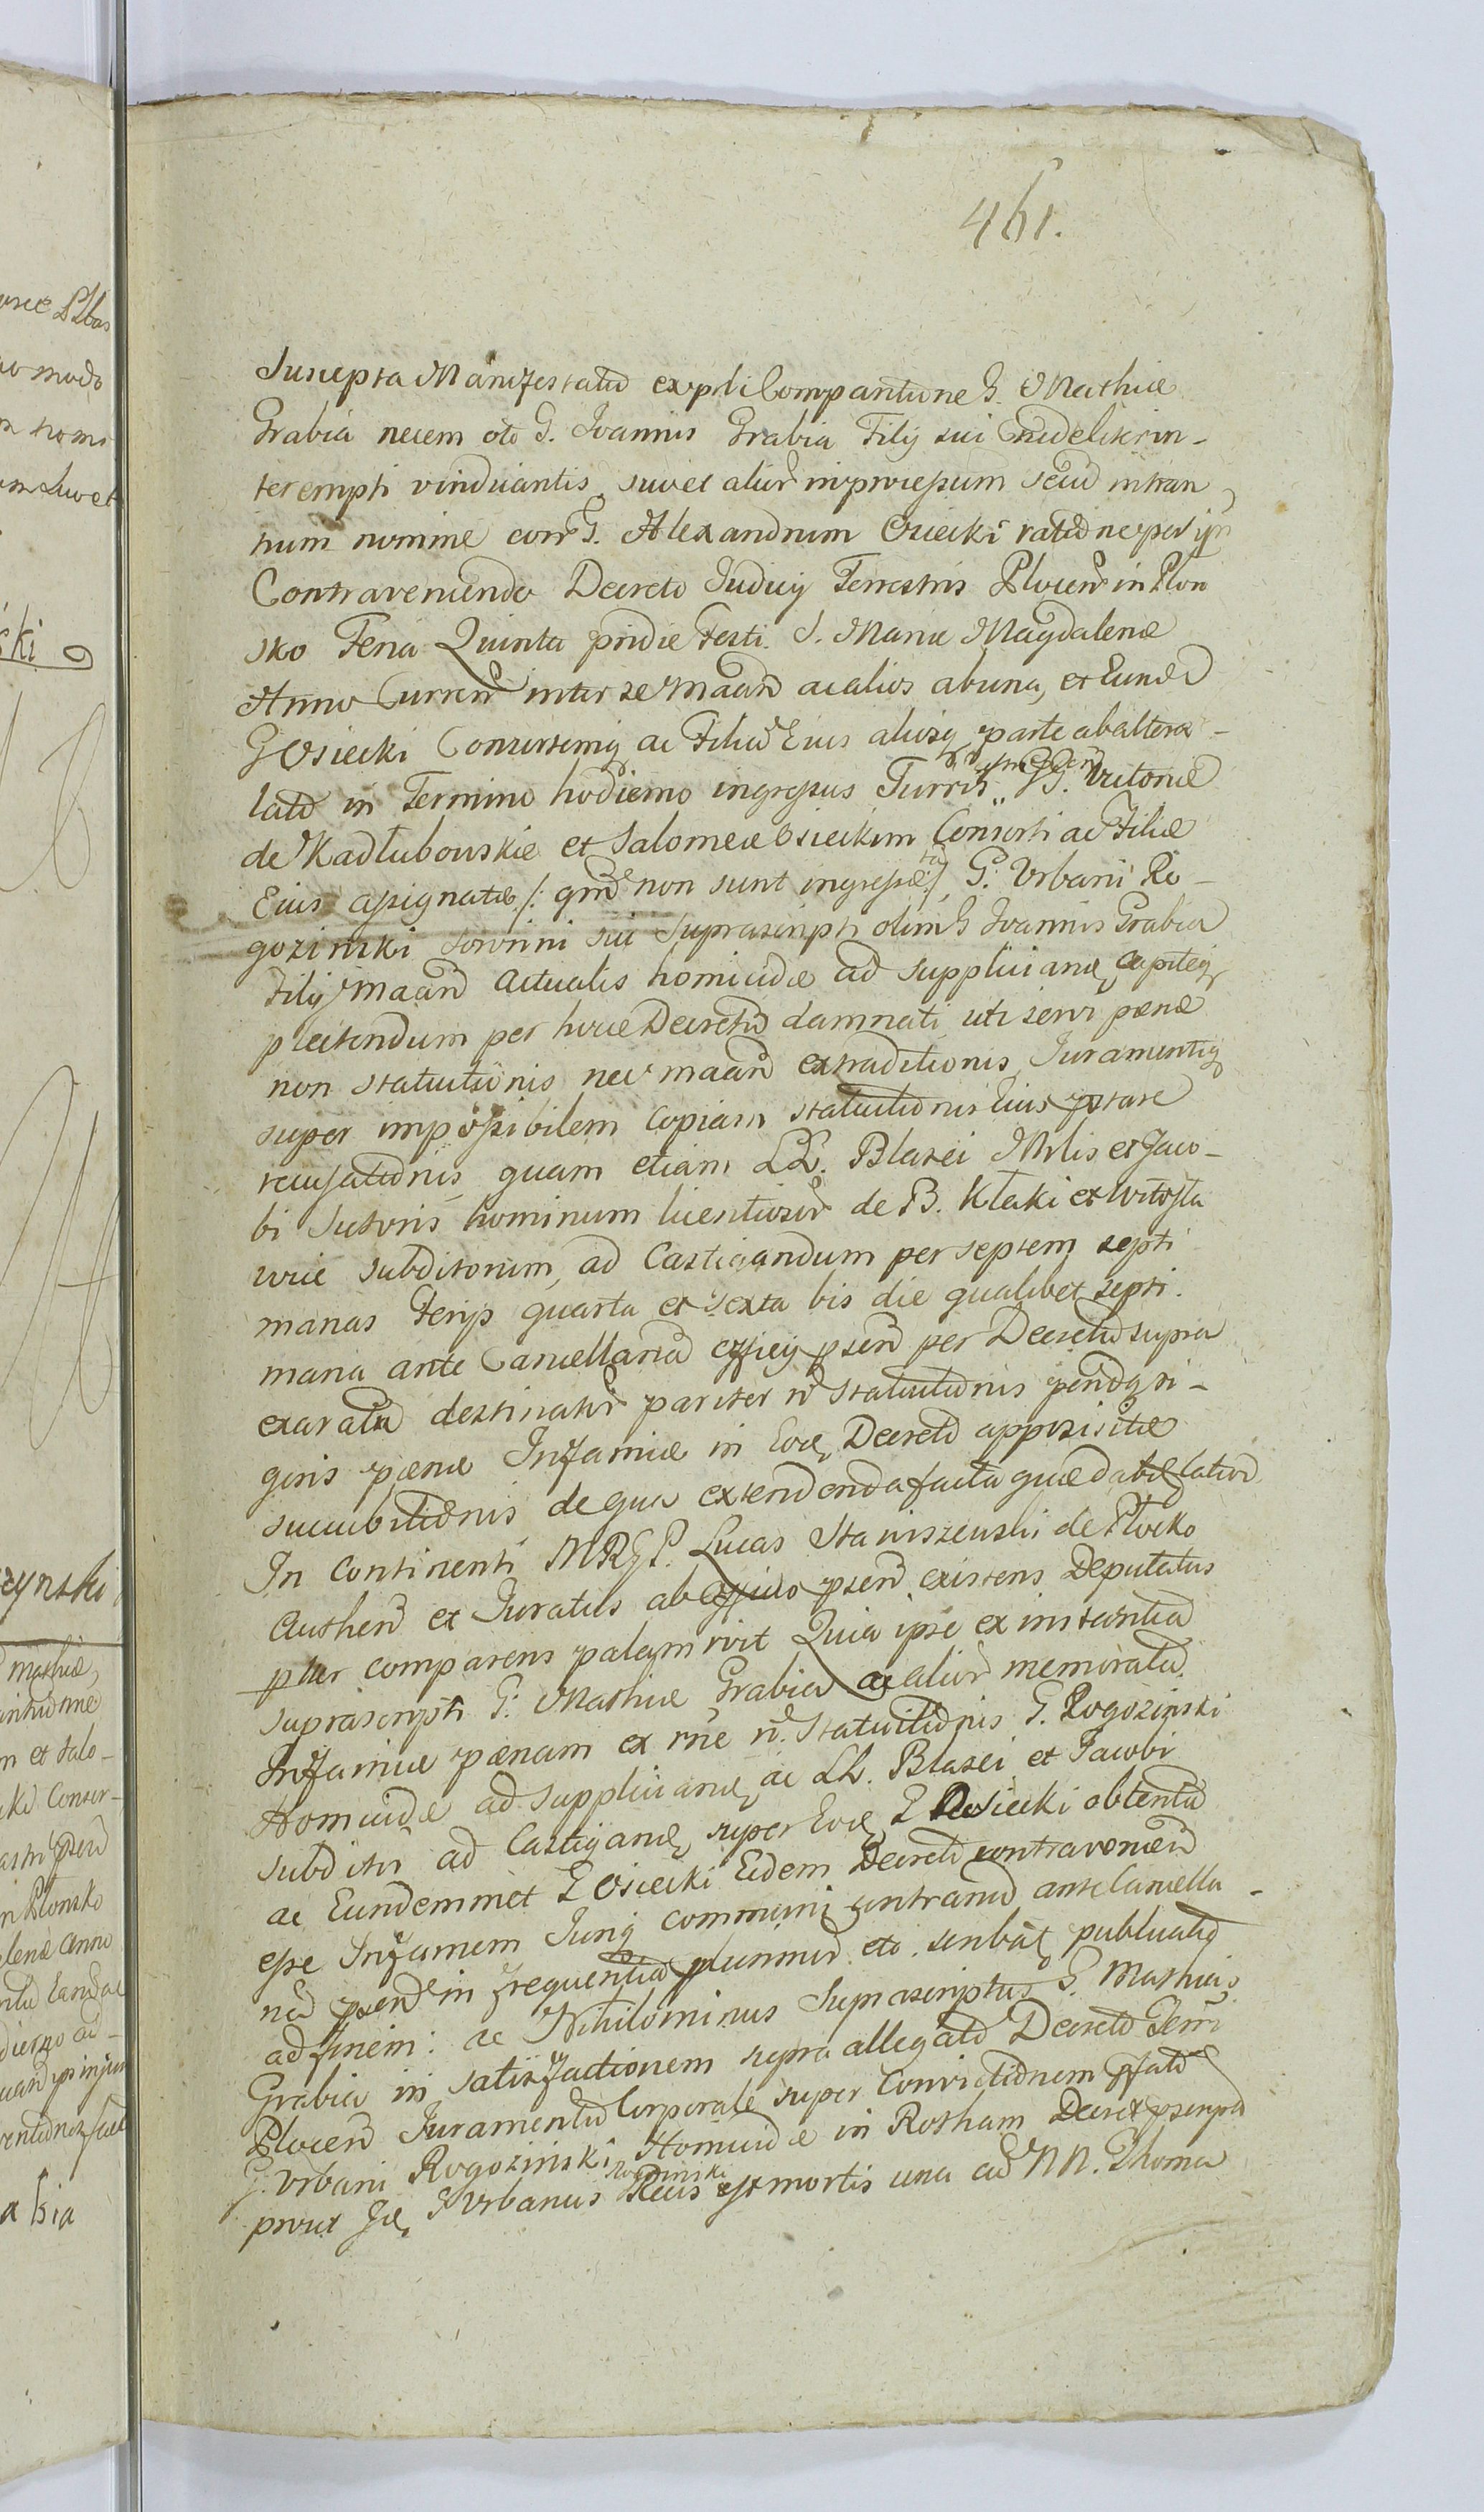 461.
Suscepta Manifestatio ex psli Compantione G. Mathiæ
Grabia necem oto G. Ioannis Grabia Filij sui Crudeliter in-
terempti vindicantis, suo et alior in processum secū intran
tium nomine con G. Alexandrum Osiecki ratione per ipsū
Contraveniendo Decreto Iudicij Terrestris Plocen in Plon
sko Feria Quinta pridie Festi S. Mariæ Magdalenæ
Anno Curren inter se maān ac alios ab una, et Eundē
G Osiecki Consortemq ac Filiā Eius aliosq parte ab altera
lato in Termino hodierno ingressus Turris GG. Victoriæ
de Kadłubowskie et Salomeæ Osieckim Consorti ac Filiæ
Eius assignatæ /: qmē non sunt ingressæ :/ G. Vrbani Ro-
gozinski sororini sui suprascripti olim G Ioannis Grabia
Filij maān actualis homicidæ ad suppliciand capiteq
plectendum per hocce Decretū damnati uti servi pænæ
non statuitionis nec maān extraditionis, Iuramentiq
super impossibilem copiam statuitionis Eius pstare
recusationis quam etiam LL. Blasei Mlis et Jaco-
bi Sutoris hominum licentiosor de B. Kłaki et Witosła
wice subditorum, ad Castigandum per septem septi
manas Ferijs quarta et sexta bis die qualibet septi.
mana ante Cancellariā officij psen per Decretū supra
exaratū destinator pariter n statuitionis
goris pænæ Infamiæ in Eod Decreto appositæ
succubitionis de qua extendenda facta quæ dabit lator
In continenti MRGP. Lucas Staniszewski de Płocko
Authen et Iuratus ab officio psen existens Deputatus
plter comparens palam rvit Quia ipse ex instantia
suprascripti G. Mathiæ Grabia ac alior memoratā
Infamiæ pænam ex rne n. statuitionis G. Rogozinski
Homicidæ ad suppliciand ac LL. Blasei et Jacobi
subditor ad Castigand super Eod G Osiecki obtentā
ac Eundemmet G Osiecki Eidem Decreto contravenien
esse Infamem Iureq communi gntranū ante Cancella-
riā psen in frequentia plurimor etc. scribat publicatio
ad finem: ac Nihilominus Suprascriptus G. Mathias
Grabia in satisfactionem supra allegato Decreto Terri
Plocen Iuramentū Corporale super Convictionem pfati
G. Vrbani Rogozinski Homicidæ in Rotham Decret pscripta
Rogozinski
prout Id G Vrbanus Reus est mortis una cū NN. Thoma